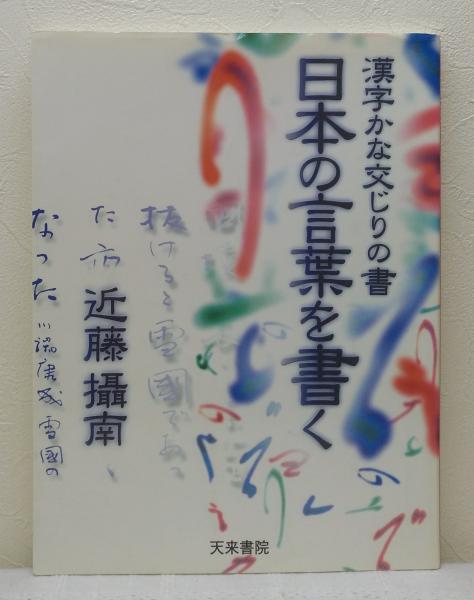 漢字かな交じりの書
日本の言葉を書く
抜けると雪國であつ
た
近藤攝南
なつた 川端康成 雪國の
天来書院